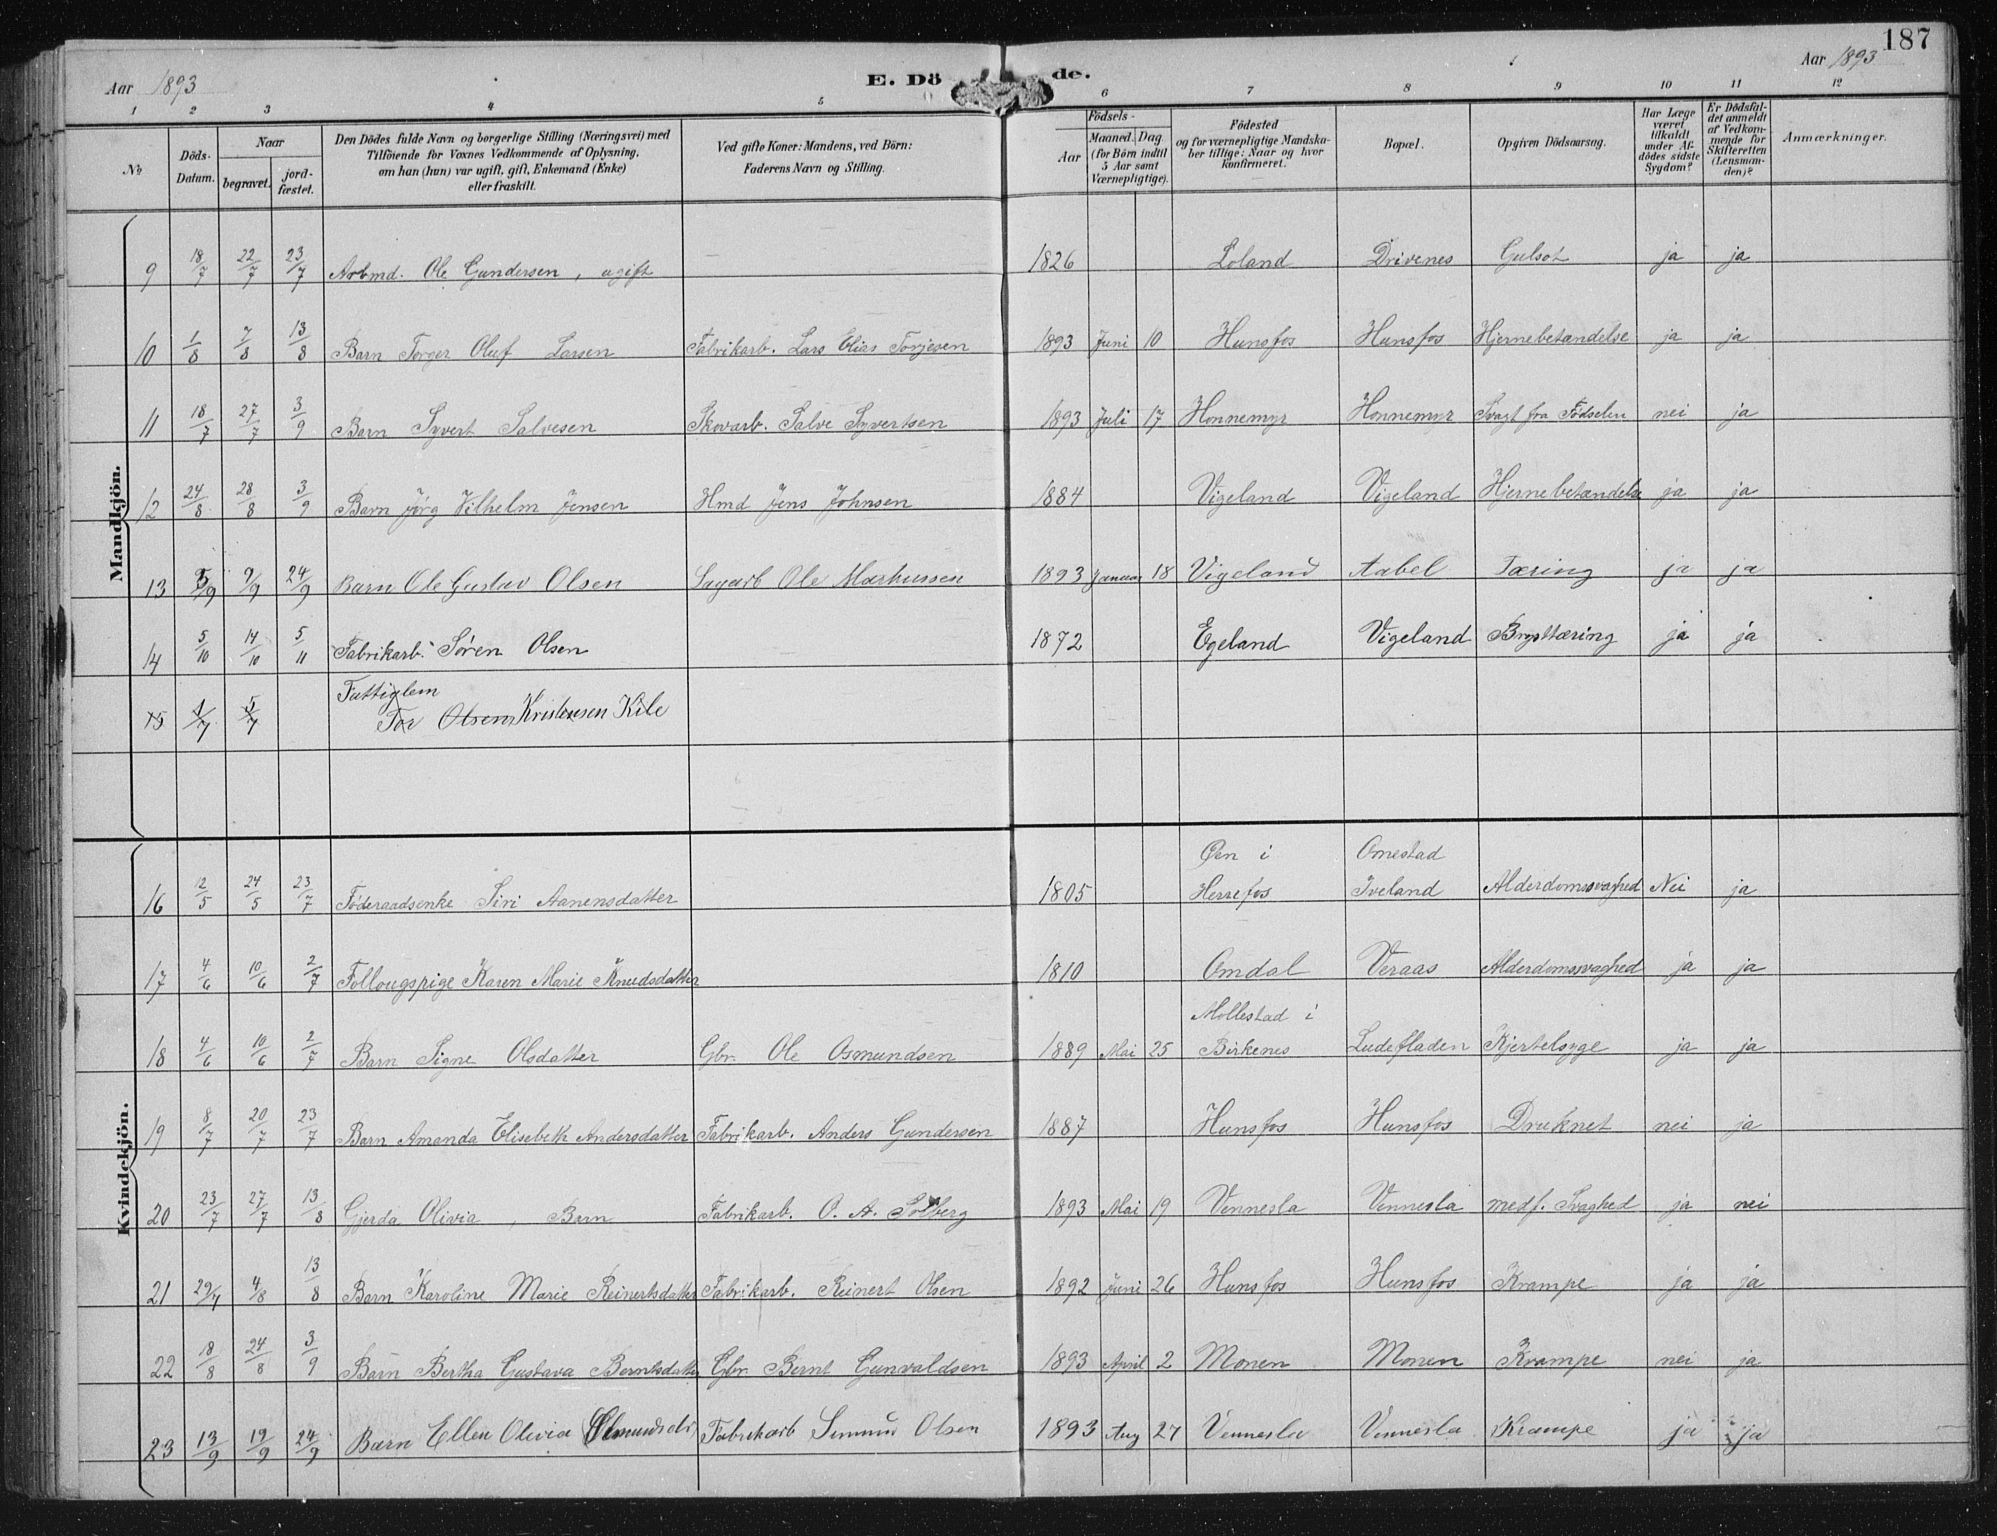 187
Aar 1893 E. Dö de. Aar 1893
1 2 3 4 5 6 7 8 9 10 11 12
No
Döds-Datum.
Naar
begravet.
jord-fæstet.
Den Dödes fulde Navn og borgerlige Stilling (Næringsvei) med
Tilföiende for Voxnes Vedkommende af Oplysning,
om han (hun) var ugift, gift, Enkemand (Enke)
eller fraskilt.
Ved gifte Koner: Mandens, ved Börn:
Faderens Navn og Stilling.
Födsels-
Aar
Maaned. Dag.
(for Börn indtil
5 Aar samt
Værnepligtige).
Födested
og for værnepligtige Mandska-
ber tillige: Naar og hvor
konfirmeret.
Bopæl.
Opgiven Dödsaarsag.
Har Læge
været
tilkaldt
under Af-
dödes sidste
Sygdom?
Er Dödsfal-
det anmeldt
af Vedkom-
mende for
Skifteretten
(Lensman-
den)?
Anmærkninger.
Mandkjön.
9 18/7 22/7 23/7 Arbmd. Ole Gundersen, ugift 1826 Loland Drivenes Gulsot ja ja
10 1/8 7/8 13/8 Barn Torger Oluf Larsen Fabrikarb. Lars Elias Torjesen 1893 Juni 10 Hunsfos Hunsfos Hjernebetændelse ja ja
11 18/7 27/7 3/9 Barn Syvert Salvesen Skovarb. Salve Syvertsen 1893 Juli 17 Honnemyr Honnemyr Svagt fra Fødselen nei ja
12 24/8 28/8 3/9 Barn Jørg Vilhelm Jensen Hmd Jens Johnsen 1884 Vigeland Vigeland Hjernebetændelse ja ja
13 5/9 9/9 24/9 Barn Ole Gustav Olsen Sagarb Ole Markussen 1893 Januar 18 Vigeland Aabel Tæring ja ja
14 5/10 14/10 5/11 Fabrikarb. Søren Olsen 1872 Egeland Vigeland Brysttæring ja ja
Fattiglem
15 1/7 5/7 Tor Olsen Kristensen Kile
Kvindekjön.
Øen i Omestad
16 12/5 24/5 23/7 Føderaadsenke Siri Aanensdatter 1805 Herrefos Iveland Alderdomssvaghed Nei ja
17 4/6 10/6 2/7 Follougspige Karen Marie Knudsdatter 1810 Omdal Veraas Alderdomssvaghed ja ja
Mollestad i
18 4/6 10/6 2/7 Barn Signe Olsdatter Gbr. Ole Osmundsen 1889 Mai 25 Birkenes Ludefladen Kjertelsyge ja ja
19 8/7 20/7 23/7 Barn Amanda Elisebeth Andersdatter Fabrikarb. Anders Gundersen 1887 Hunsfos Hunsfos Druknet nei ja
20 23/7 27/7 13/8 Gjerda Olivia, Barn Fabrikarb. O. A. Solberg 1893 Mai 19 Vennesla Vennesla medf. Svaghed ja nei
21 29/7 4/8 13/8 Barn Karoline Marie Reinertsdatter Fabrikarb. Reinert Olsen 1892 Juni 26 Hunsfos Hunsfos Krampe ja ja
22 18/8 24/8 3/9 Barn Bertha Gustava Berntsdatter Gbr. Bernt Gunvaldsen 1893 April 2 Monen Monen Krampe nei ja
23 13/9 19/9 24/9 Barn Ellen Olivia Fabrikarb Olsen 1893 Aug 27 Vennesla Vennesla Krampe ja ja